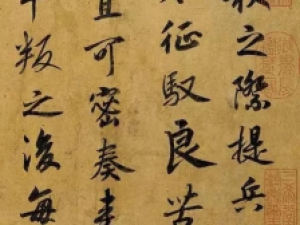 之際提兵
征馭良苦
可密奏来
叛之後每